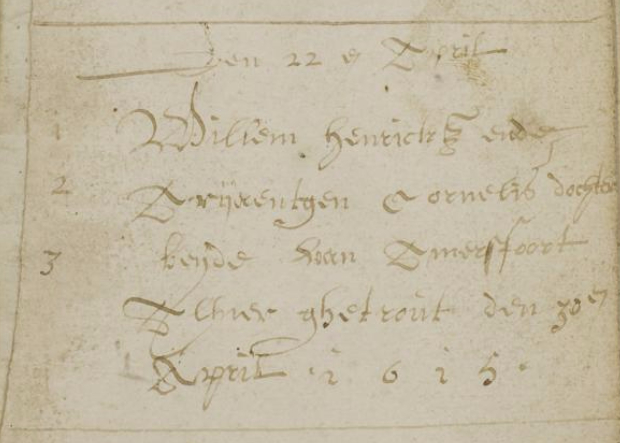 Den 22 e April
1 Willem henrickss ende
2 Arijaentgen Cornelis dochter
3 beijde van Amersfoort
Alhier ghetrout den 30en
April · 1 6 1 5 ·